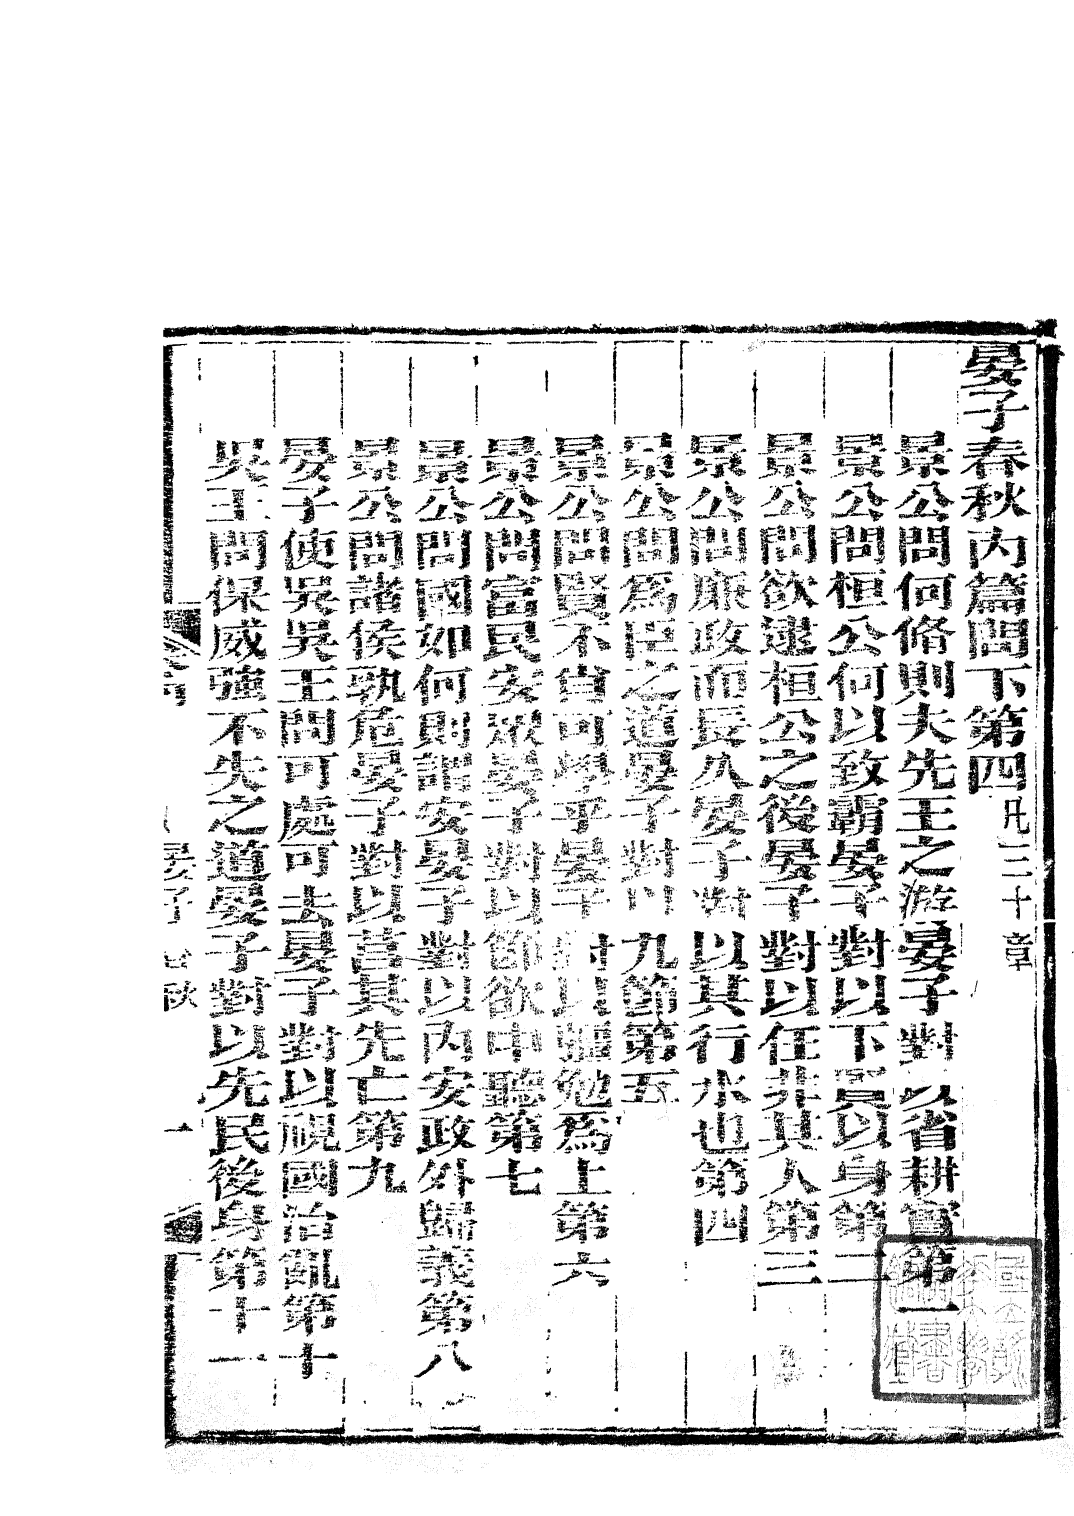 晏子春秋内篇問下第四凡三十章
景公問何脩則夫先王之游晏子對以省耕實第一
景公問桓公何以致霸晏子對以下賢以身第二
景公問欲逮桓公之後晏子對以任非其人第三
景公問廉政而長久晏子對以其行水也第四
景公問爲臣之道晏子對以九節第五
景公問賢不肖可學乎晏子對以彊勉爲上第六
景公問富民安衆晏子對以節欲中聽第七
景公問國如何則謂安晏子對以内安政外歸義第八
景公問諸侯孰危晏子對以莒其先亡第九
晏子使吳吳王問可處可去晏子對以視國治亂第十
吳王問保威強不失之道晏子對以先民後身第十一
晏子春秋
一